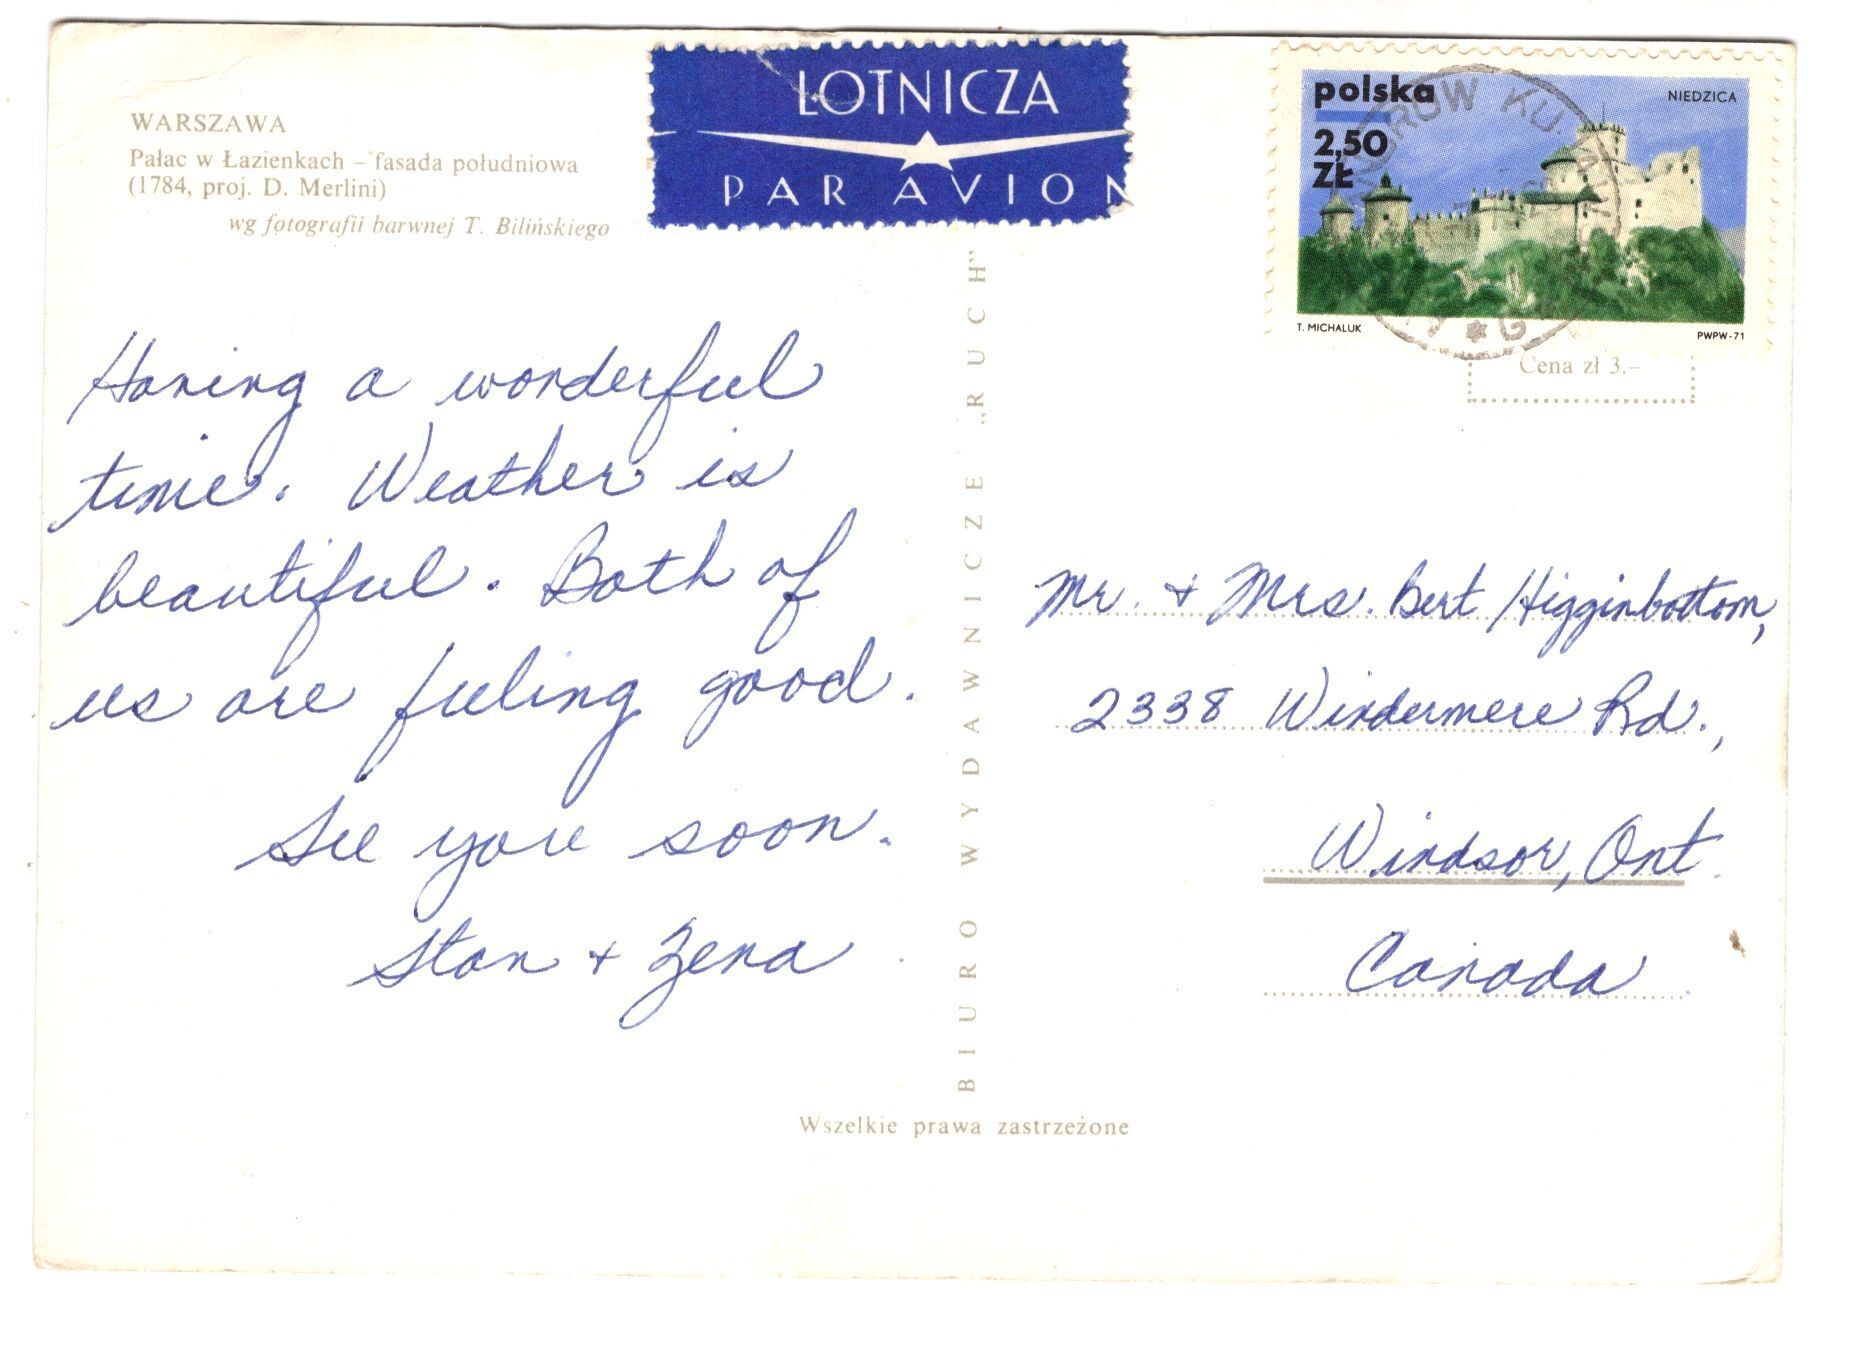 WARSZAWA
Pałac w Łazienkach – fasada południowa
(1784, proj. D. Merlini)
wg fotografii barwnej T. Bilińskiego
LOTNICZA
PAR AVION
polska
NIEDZICA
2,50
ZŁ
T. MICHALUK
PWPW-71
Cena zł 3.–
Having a wonderful
time. Weather is
beautiful. Both of
us are feeling good.
See you soon.
Stan + Zena
BIURO WYDAWNICZE „RUCH”
Mr. + Mrs. Bert Higginbottom,
2338 Windermere Rd.,
Windsor, Ont.
Canada
Wszelkie prawa zastrzeżone